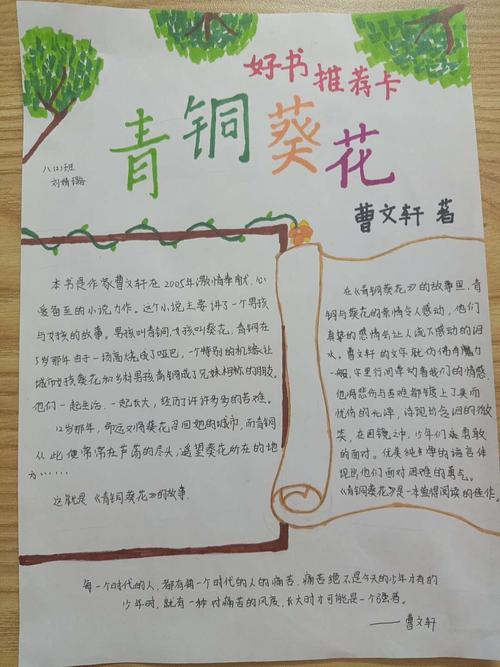 好书推荐卡
青铜葵花
八(2)班
曹文轩 著
本书是作家曹文轩在2005年激情奉献、心
蓄百至的小说力作。这个小说主要讲了一个男孩
与女孩的故事。男孩叫青铜,女孩叫葵花,青铜在
5岁那年由于一场高烧成了哑巴,一个特别的机缘,让
城市女孩葵花和乡村男孩青铜成了兄妹相称的朋友。
他们一起生活、一起长大,经历了许许多多的苦难。
12岁那年,命运又将葵花召回她的城市,而青铜
从此便常常在芦荡的尽头,遥望葵花所在的地
方……
这就是《青铜葵花》的故事.
在《青铜葵花》的故事里,青
铜与葵花的亲情令人感动,他们
真挚的感情会让人流下感动的泪
水。曹文轩的文字就仿佛有魔力
一般,字里行间牵动着我们的情感.
他将悲伤与苦难都镀上了美而
忧伤的光泽,诗现出含泪的微
笑,在困境之中,少年们会勇敢
的面对。优美纯净的语言体
现出他们面对困难的勇气。
《青铜葵花》是一本值得阅读的佳作。
每一个时代的人,都有每一个时代的人的痛苦,痛苦绝不是今天的少年才有的
少年时,就有一种对痛苦的风度,长大时才可能是一个强者。
——曹文轩